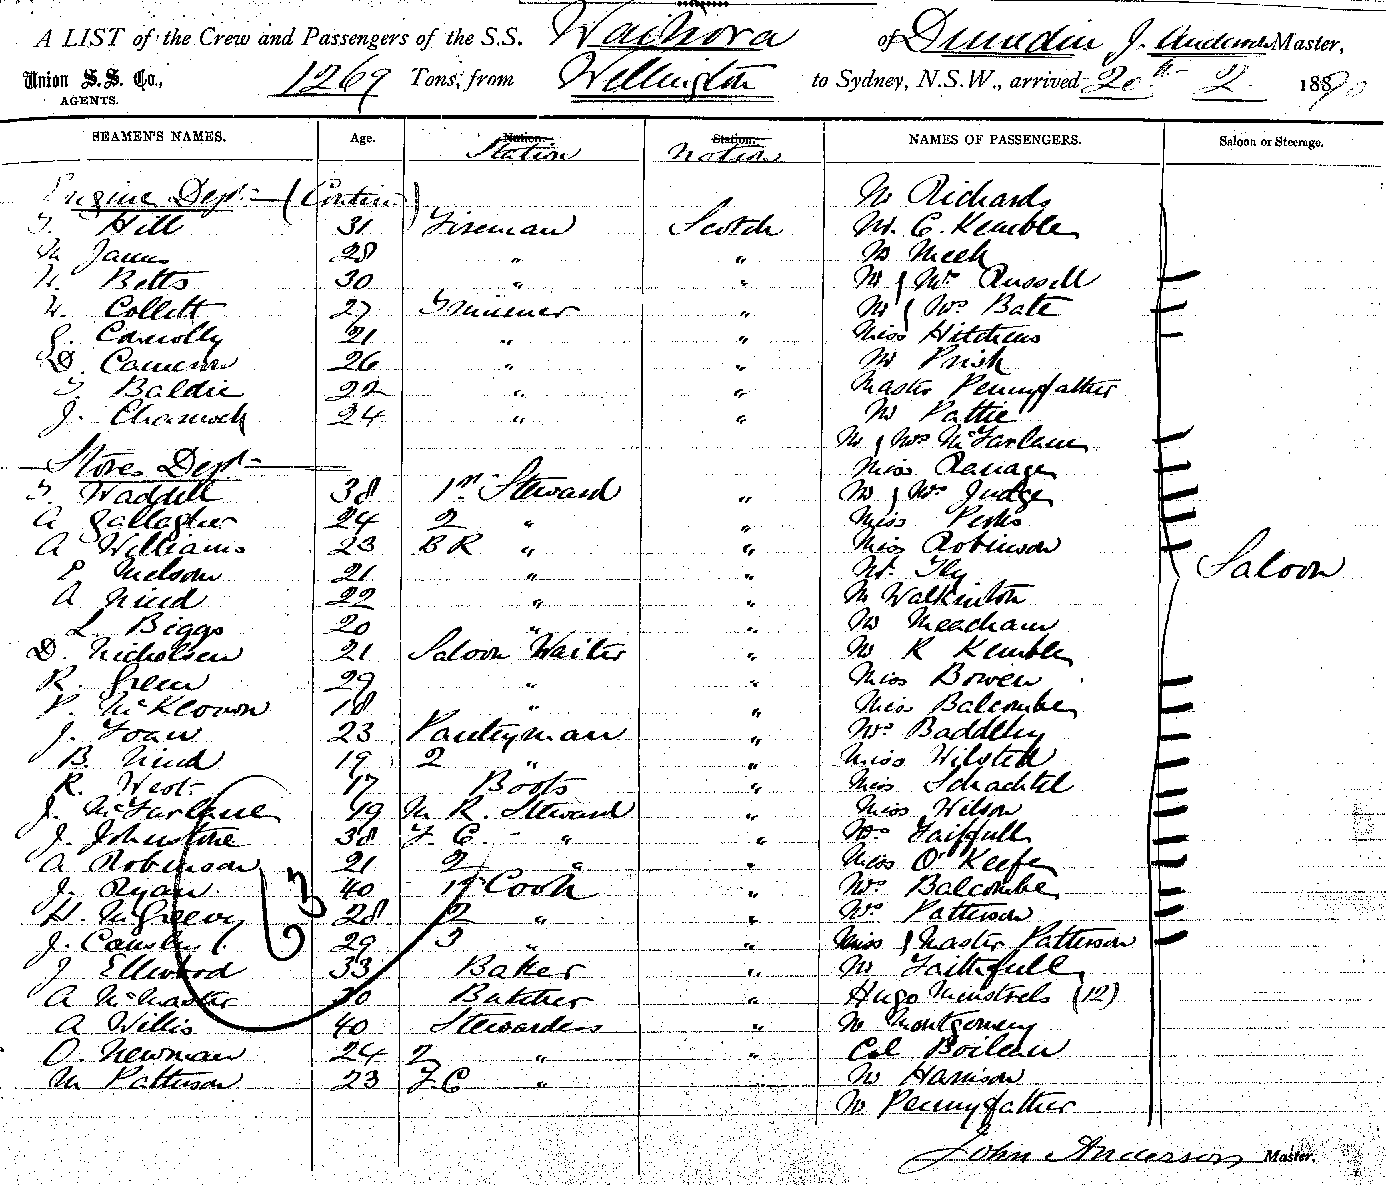 A LIST of the Crew and Passengers of the S.S. Waihora of Dunedin J. Anderson Master,
Union S. S. Co., AGENTS. 1269 Tons, from Wellington to Sydney, N.S.W., arrived 20th 2 1890
SEAMEN'S NAMES. Age. Nation. Station Station. Nation NAMES OF PASSENGERS. Saloon or Steerage.
Engine Dept. (Contin) Mr Richards
T. Hill 31 Fireman Scotch Mr. C. Kemble
M James 28 " " Mr Meek
W. Betts 30 " " Mr & Mrs Russell
W. Collett 27 Trimmer " Mr & Mrs Bate
J. Connolly 21 " " Miss Hitchens
D. Cameron 26 " " Mr
T. Baldie 22 " " Master Pennyfather
J. 24 " " Mr Pattie
Mr & Mrs McFarlane
Stores Dept Miss Ranage
T. Waddell 38 1st Steward " Mr & Mrs Judge
A Gallagher 24 2 " " Miss Perks
A Williams 23 B R " " Miss Robinson
E Nelson 21 " " Mr. Fly
A Nind 22 " " Mr Walkinton
L. Biggs 20 " " Mr Meacham
D. Nicholsen 21 Saloon Waiter " Mr R Kemble
R. Green 29 " " Miss Bowen
P. McKeown 18 " " Miss Balcombe
J. Foan 23 Pantryman " Mrs Baddley
B. Nind 19 2 " " Miss Wilsted
R. West 17 Boots " Miss Schachtel
J. McFarlane 19 M. R. Steward " Miss Wilson
J. Johnstone 38 F. C. " " Mrs Faithfull
A Robinson 21 2 " Miss O'Keefe
J. Ryan 40 1st Cook " Mrs Balcombe
H. McGreevy 28 2 " " Mrs Patterson
J. 29 3 " " Miss & Master Patterson
J Ellwood 33 Baker " Mr Faithfull
A McMaster 30 Butcher " Hugo Minstrels (12)
A Willis 40 Stewardess " Mr Montgomery
O. Newman 24 2 " " Col Boileau
M Patterson 23 F.C " Mr Harrison
Mr Pennyfather
Saloon
63
John Anderson Master.